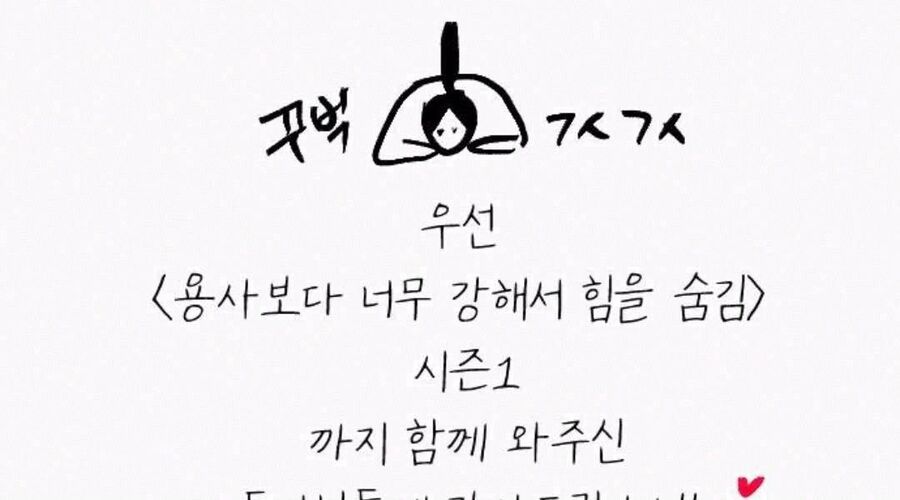 꾸벅 ㄱㅅㄱㅅ
우선
<용사보다 너무 강해서 힘을 숨김>
시즌1
까지 함께 와주신